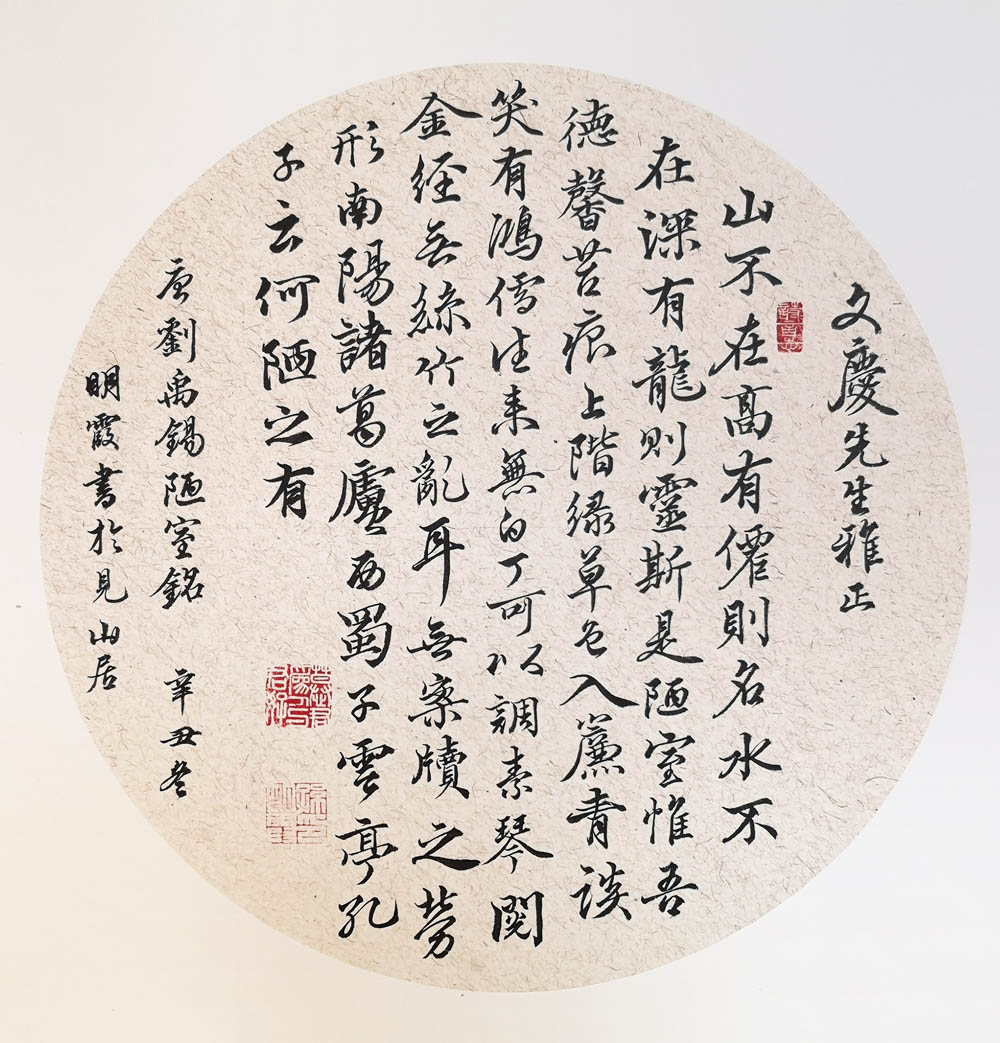 文慶先生雅正
山不在高有僊則名水不
在深有龍則靈斯是陋室惟吾
德馨苔痕上階緑草色入簾青談
笑有鴻儒往来無白丁可以調素琴閱
金經無絲竹之亂耳無案牘之勞
形南陽諸葛廬西蜀子雲亭孔
子云何陋之有
唐劉禹錫陋室銘 辛丑冬
明霞書於見山居